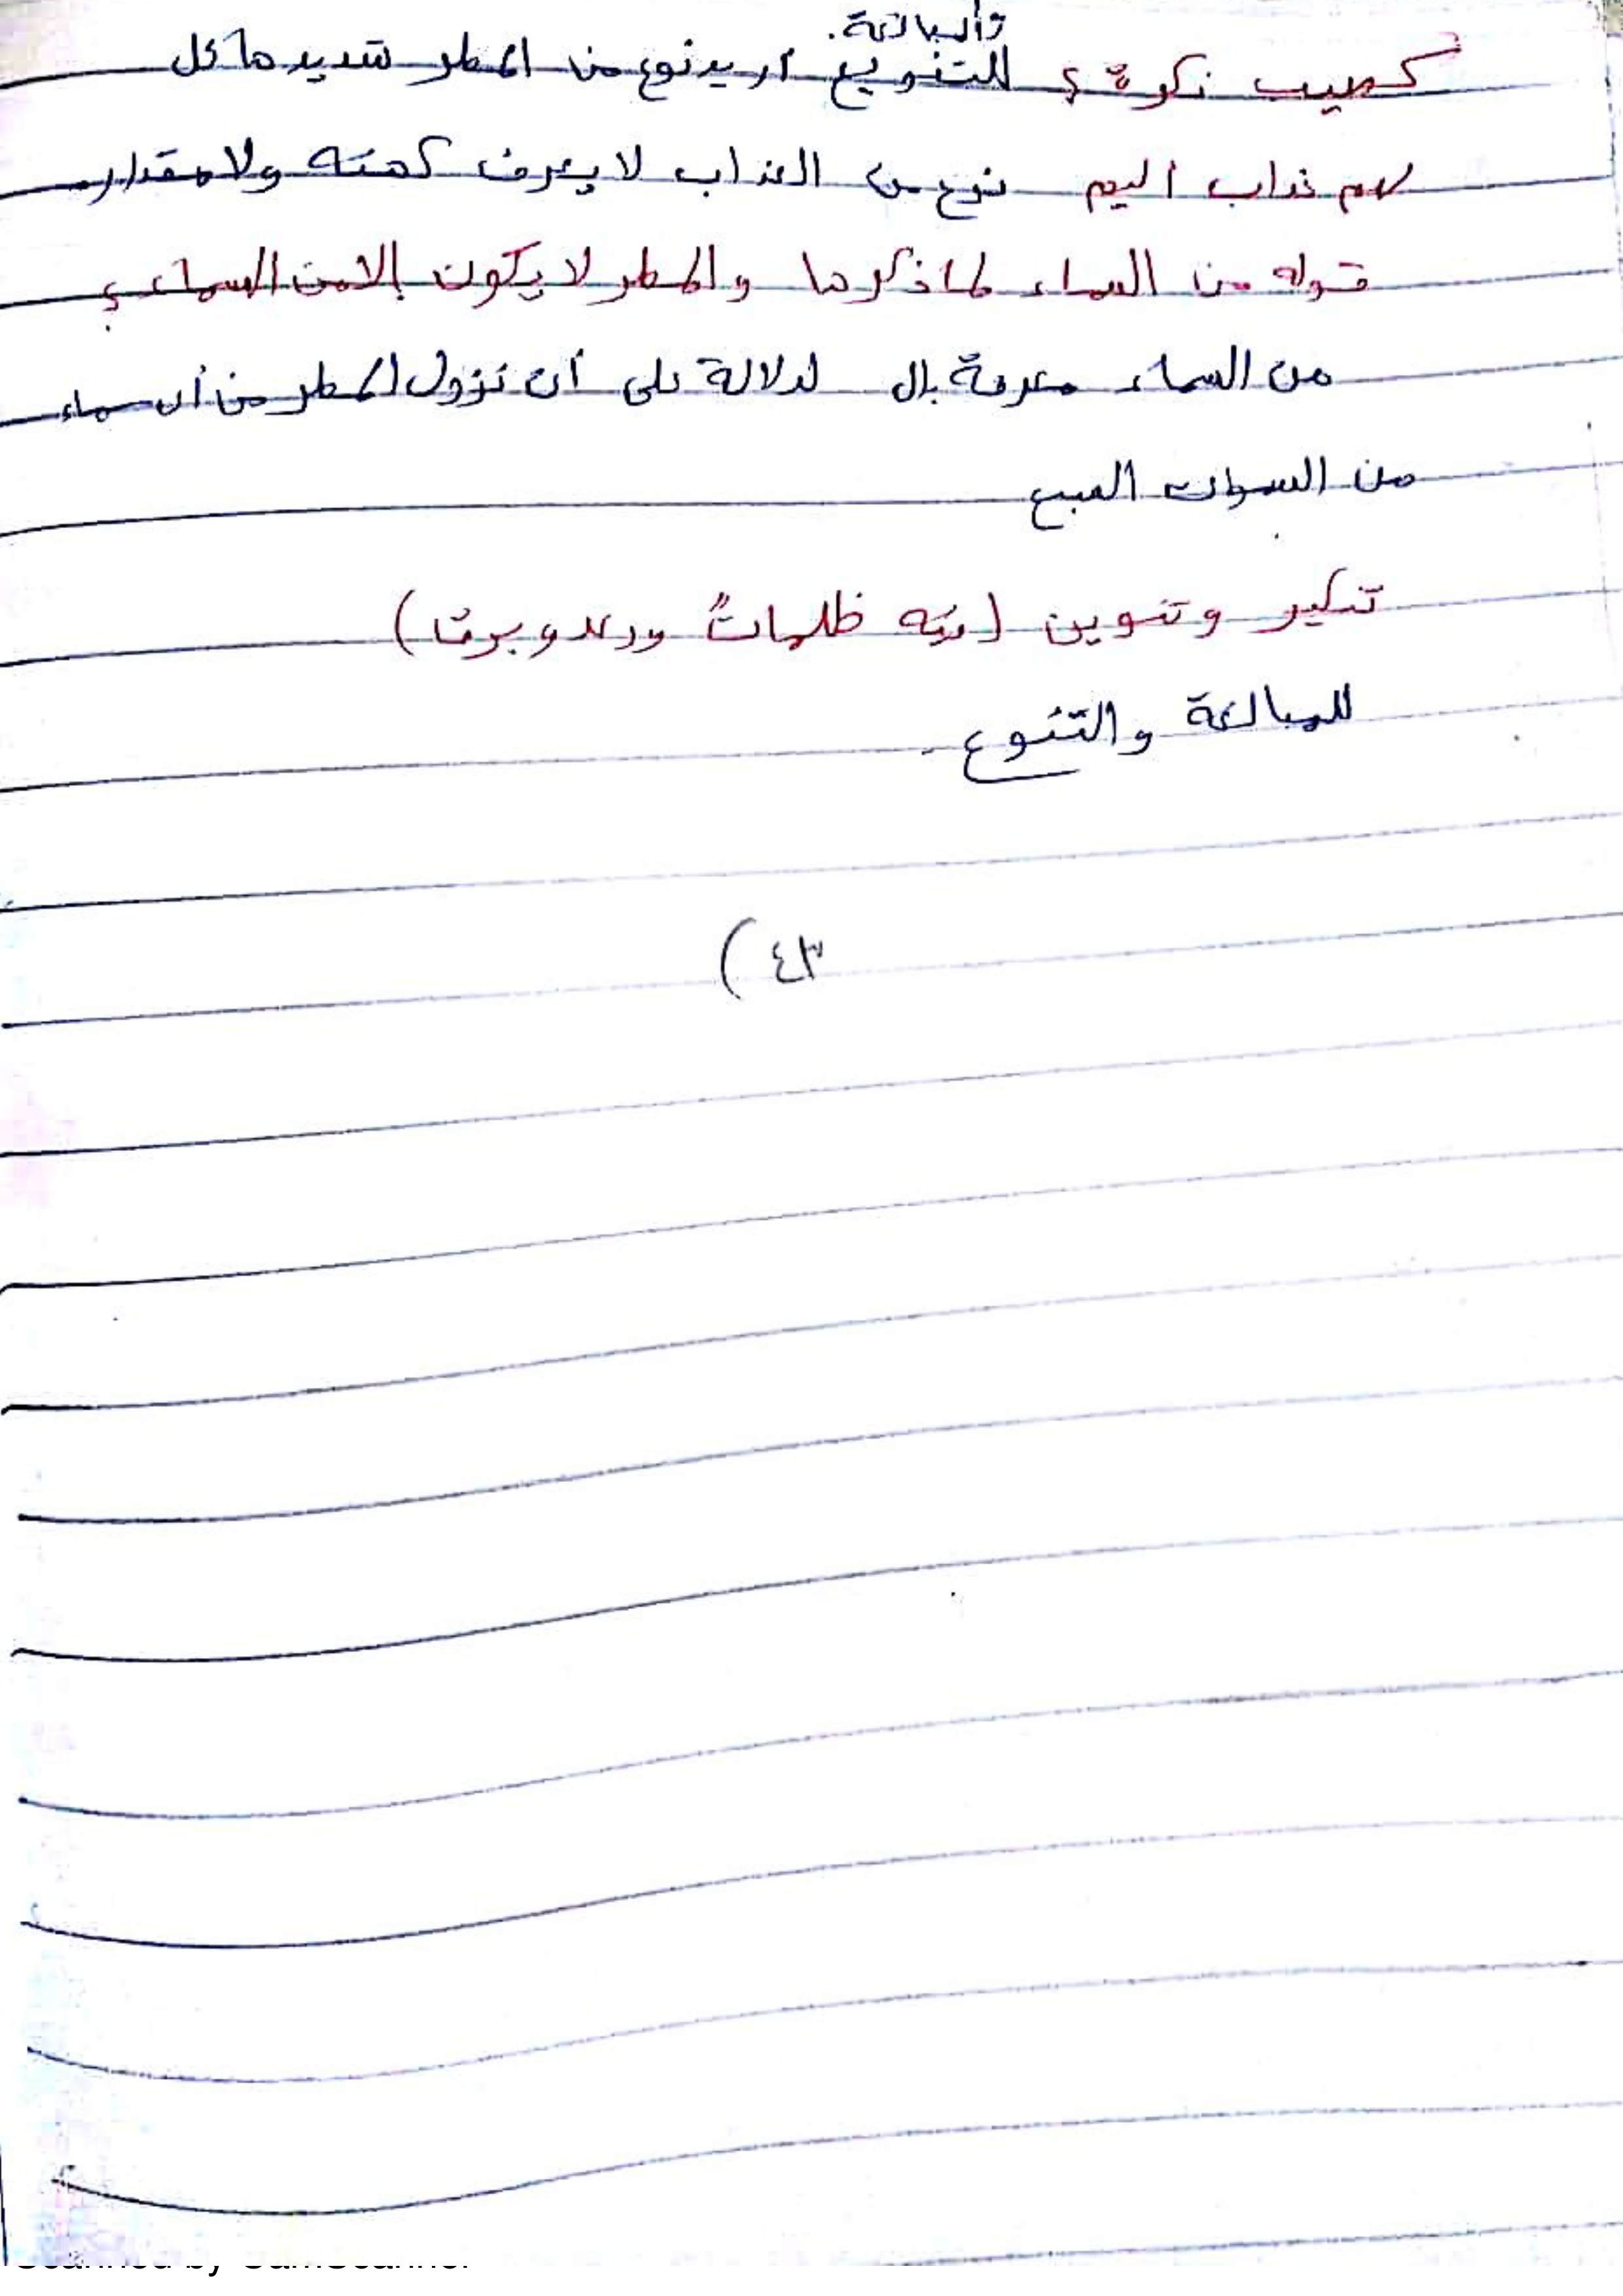 والمبالغة.
كصيب نكرة؟ للتنويع أريد نوع من المطر شديد هائل
لهم عذاب اليم نوع من العذاب لا يعرف كهنه ولا مقدار
قوله من السماء لماذكرها والمطر لا يكون إلا من السماء؟
من السماء معرفة بال لدلالة على أن نزول المطر من أي سماء
من السموات السبع
تنكير وتنوين (فيه ظلماتٌ ورعد وبرق)
للمبالغة والتنوع
٤٣)
Scanned by CamScanner